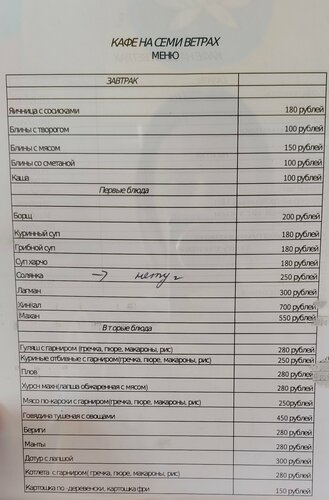 КАФЕ НА СЕМИ ВЕТРАХ
МЕНЮ
ЗАВТРАК
Яичница с сосисками 180 рублей
Блины с творогом 100 рублей
Блины с мясом 150 рублей
Блины со сметаной 100 рублей
Каша 100 рублей
Первые блюда
Борщ 200 рублей
Куринный суп 180 рублей
Грибной суп 180 рублей
Суп харчо 180 рублей
Солянка → нету 250 рублей
Лагман 300 рублей
Хингал 700 рублей
Махан 550 рублей
Вторые блюда
Гуляш с гарниром (гречка, пюре, макароны, рис) 280 рублей
Куриные отбивные с гарниром(гречка, пюре, макароны, рис) 250 рублей
Плов 280 рублей
Хурсн махн (лапша обжаренная с мясом) 280 рублей
Мясо по-карски с гарниром(гречка, пюре, макароны, рис) 250рублей
Говядина тушеная с овощами 450 рублей
Бериги 280 рублей
Манты 280 рублей
Дотур с лапшой 300 рублей
Котлета с гарниром( гречка, пюре, макароны, рис) 280 рублей
Картошка по -деревенски, картошка фри 150 рублей